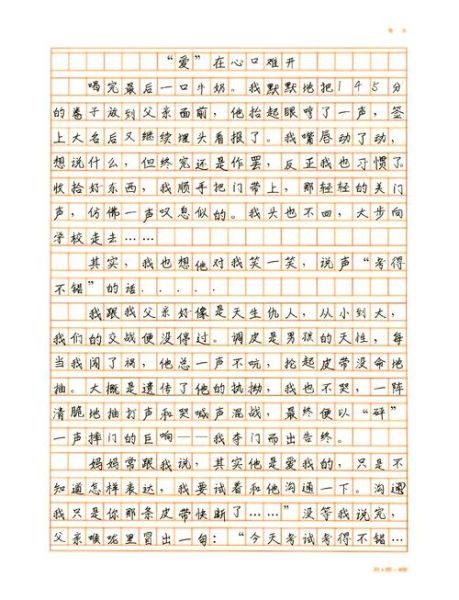 “爱”在心口难开
喝完最后一口牛奶。我默默地把145分
的卷子放到父亲面前，他抬起眼哼了一声，签
上大名后又继续埋头看报了。我嘴唇动了动，
想说什么，但终究还是作罢，反正我也习惯了。
收拾好东西，我顺手把门带上，那轻轻的关门
声，仿佛一声叹息似的。我头也不回，大步向
学校走去……
其实，我也想他对我笑一笑，说声“考得
不错”的话....
我跟我父亲好像是天生仇人，从小到大，
我们的交战便没停过。调皮是男孩的天性，每
当我闯了祸，他总一声不吭，抡起皮带没命地
抽。大概是遗传了他的执拗，我也不哭，一阵
清脆地抽打声和哭喊声混战，最终便以“砰”
一声摔门的巨响——我夺门而出告终。
妈妈常跟我说，其实他是爱我的，只是不
知道怎样表达，我要试着和他沟通一下。沟通
我只是你那条皮带快断了……”没等我说完，
父亲喉咙里冒出一句：“今天考试考得不错…